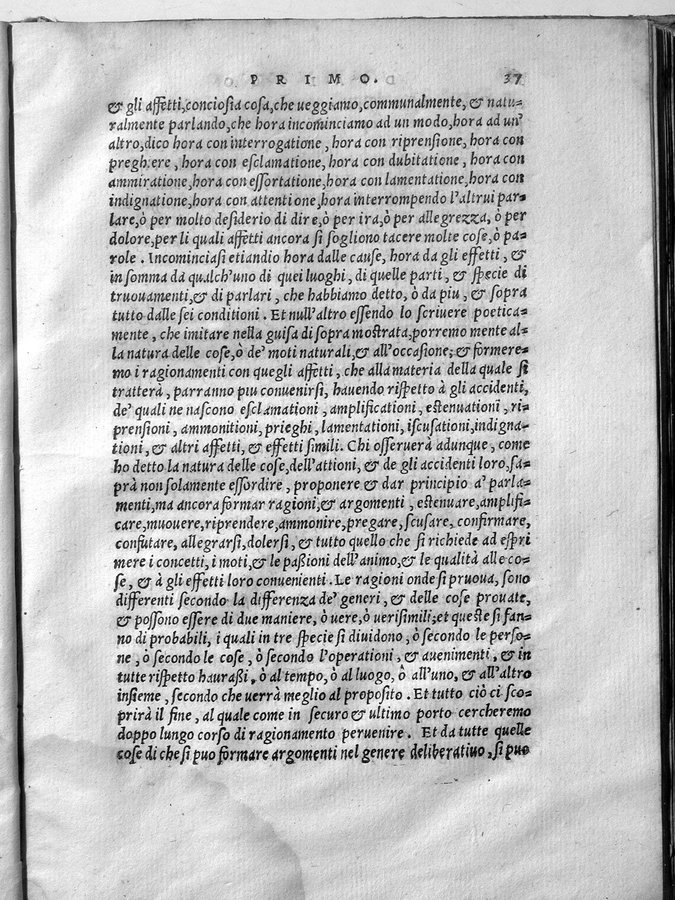 PRIMO. 37
& gli affetti,conciosia cosa,che ueggiamo,communalmente, & natu=
ralmente parlando,che hora incominciamo ad un modo,hora ad un'
altro,dico hora con interrogatione, hora con riprensione, hora con
preghiere, hora con esclamatione, hora con dubitatione, hora con
ammiratione,hora con essortatione,hora con lamentatione,hora con
indignatione,hora con attentione,hora interrompendo l'altrui par=
lare,ò per molto desiderio di dire,ò per ira,ò per allegrezza, ò per
dolore,per li quali affetti ancora si sogliono tacere molte cose,ò pa=
role. Incominciasi etiandio hora dalle cause, hora da gli effetti, &
in somma da qualch'uno di quei luoghi, di quelle parti, & specie di
truouamenti,& di parlari, che habbiamo detto, ò da piu, & sopra
tutto dalle sei conditioni. Et null'altro essendo lo scriuere poetica=
mente, che imitare nella guisa di sopra mostrata,porremo mente al=
la natura delle cose,ò de' moti naturali,& all'occasione;& formere=
mo i ragionamenti con quegli affetti, che alla materia della quale si
tratterà, parranno piu conuenirsi, hauendo rispetto à gli accidenti,
de' quali ne nascono esclamationi, amplificationi, estenuationi, ri=
prensioni, ammonitioni, prieghi, lamentationi, iscusationi,indigna=
tioni, & altri affetti, & effetti simili. Chi osseruerà adunque, come
ho detto la natura delle cose,dell'attioni, & de gli accidenti loro,sa=
prà non solamente essordire, proponere & dar principio a' parla=
menti,ma ancora formar ragioni,& argomenti, estenuare,amplifi=
care,muouere,riprendere,ammonire,pregare, scusare, confirmare,
confutare, allegrarsi,dolersi, & tutto quello che si richiede ad espri
mere i concetti, i moti,& le passioni dell'animo,& le qualità alle co=
se, & à gli effetti loro conuenienti. Le ragioni onde si pruoua, sono
differenti secondo la differenza de' generi, & delle cose prouate,
& possono essere di due maniere, ò uere,ò uerisimili;et queste si fan=
no di probabili, i quali in tre specie si diuidono, ò secondo le perso=
ne, ò secondo le cose, ò secondo l'operationi, & auenimenti, & in
tutte rispetto haurassi, ò al tempo, ò al luogo, ò all'uno, & all'altro
insieme, secondo che uerrà meglio al proposito. Et tutto ciò ci sco=
prirà il fine, al quale come in securo & ultimo porto cercheremo
doppo lungo corso di ragionamento peruenire. Et da tutte quelle
cose di che si puo formare argomenti nel genere deliberatiuo, si puo